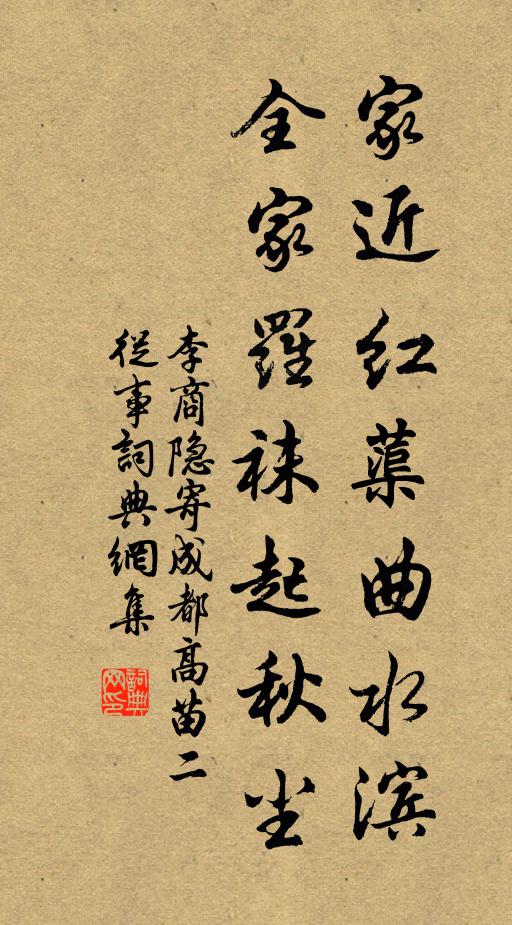 家近红蕖曲水滨
全家罗袜起秋尘
李商隐寄成都高苗二
從事詞典網集
詞典
网印